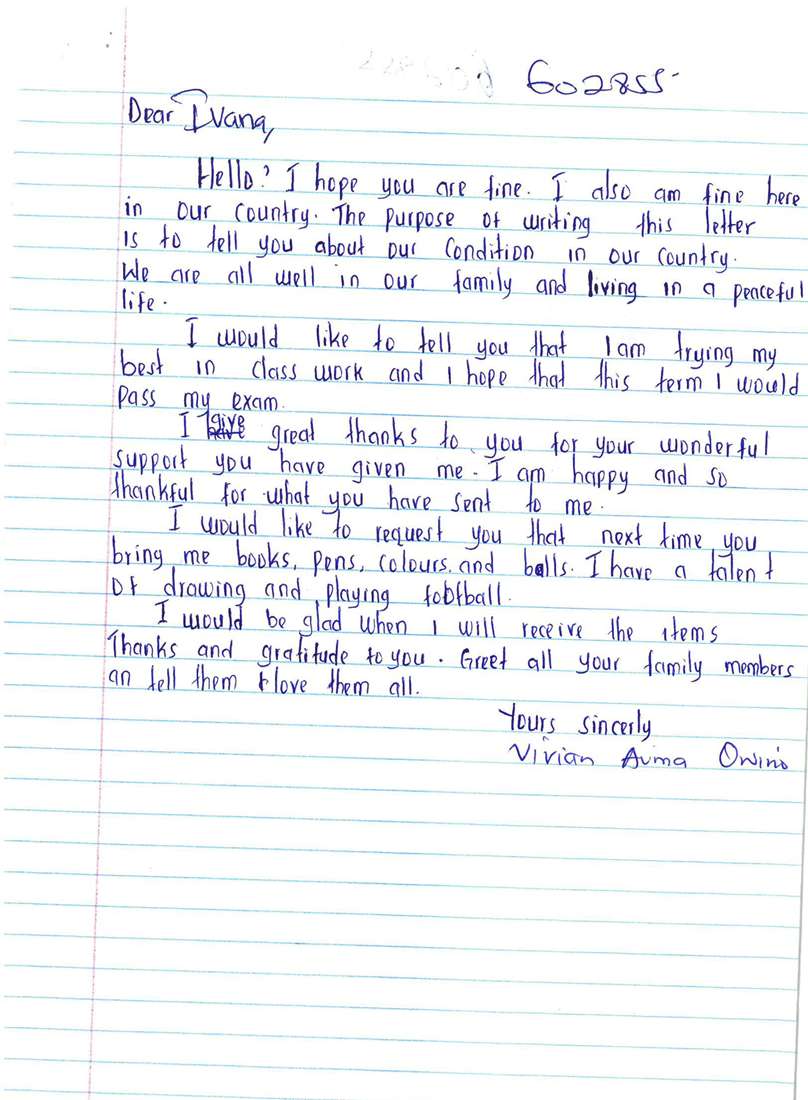 602855
Dear Ivana,
Hello? I hope you are fine. I also am fine here
in our country. The purpose of writing this letter
is to tell you about our condition in our country.
We are all well in our family and living in a peaceful
life.
I would like to tell you that I am trying my
best in class work and I hope that this term I would
pass my exam.
I give great thanks to you for your wonderful
support you have given me. I am happy and so
thankful for what you have sent to me.
I would like to request you that next time you
bring me books, pens, colours, and balls. I have a talent
of drawing and playing football.
I would be glad when I will receive the items
Thanks and gratitude to you. Greet all your family members
an tell them I love them all.
Yours sincerly
Vivian Auma Owino